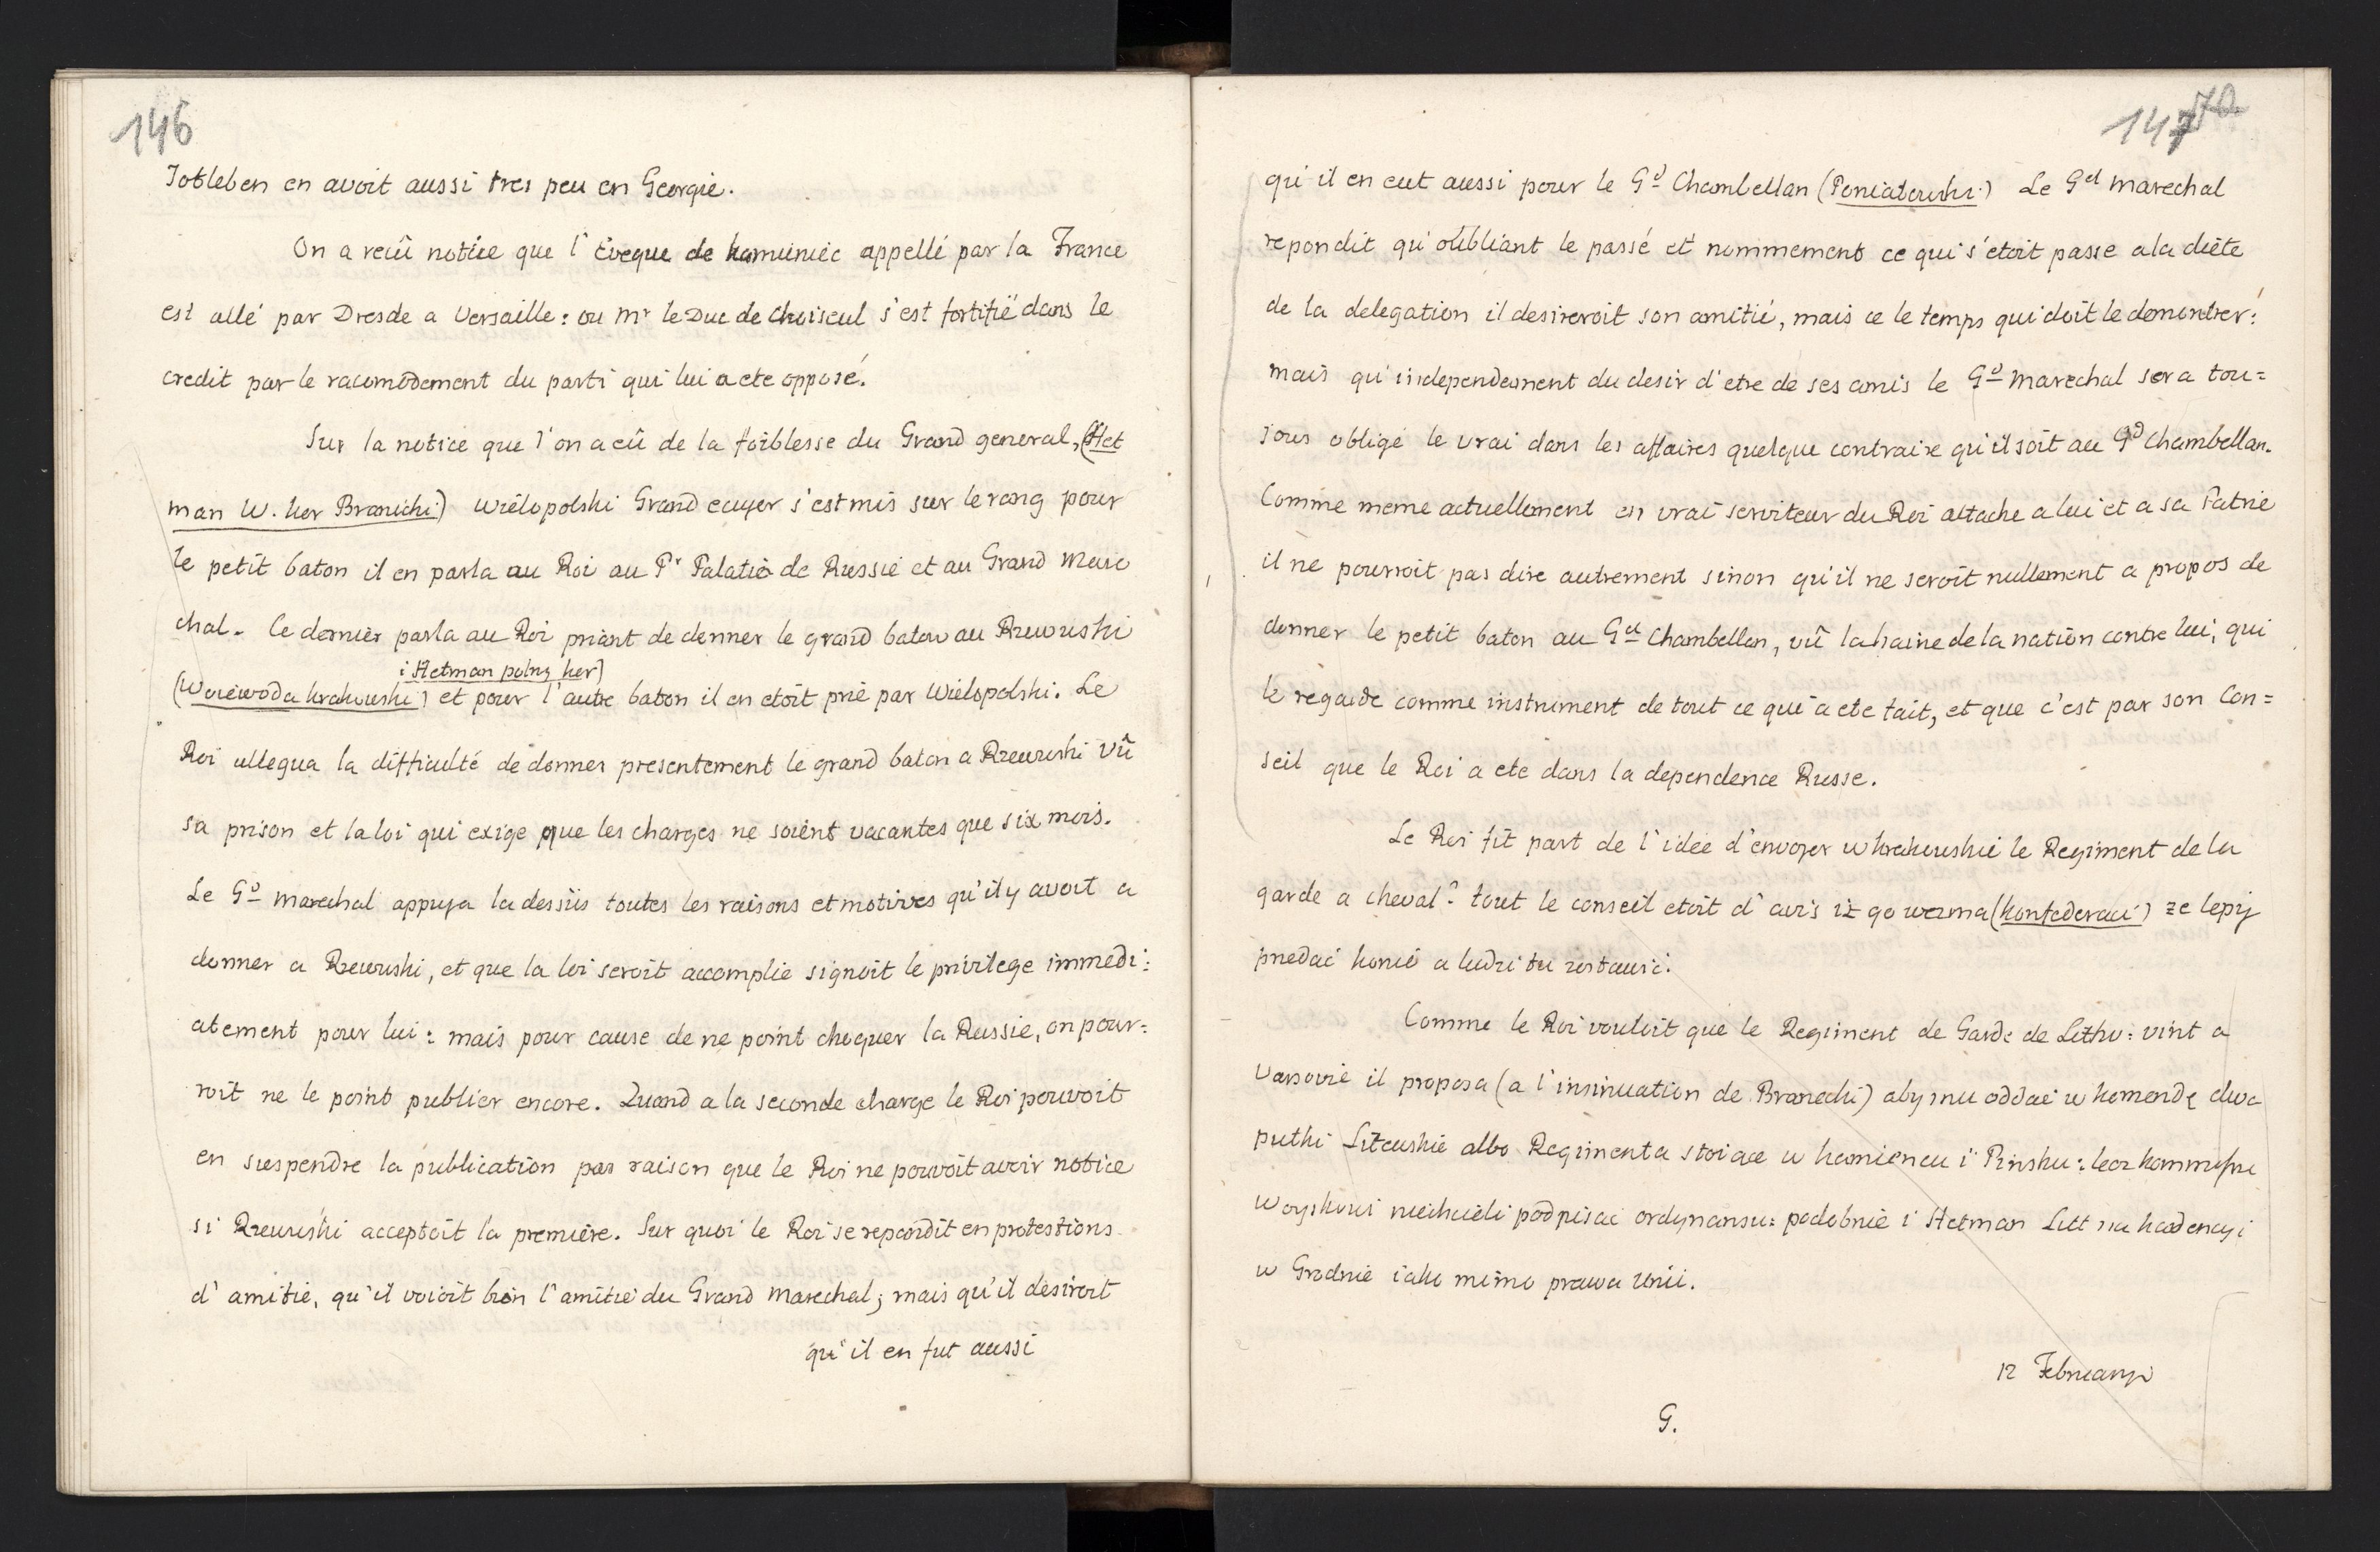 146
Totleben en avoit aussi tres peu en Georgie.
On a reçû notice que l'Eveque de Kamieniec appellé par la France
est allé par Dresde a Versaille: ou Mr le Duc de Choiseul s'est fortifié dans le
credit par le racomodement du parti qui lui a ete opposé.
Sur la notice que l'on a eû de la foiblesse du Grand general, (Het
man W. Kor Branicki) Wielopolski Grand ecuyer s'est mis sur le rang pour
le petit baton il en parla au Roi au Pr Palatin de Russie et au Grand Mare
chal. Ce dernier parla au Roi priant de donner le grand baton au Rzewuski
i Hetman polny kor)
(Woiewoda krakowski) et pour l'autre baton il en etoit prié par Wielopolski. Le
Roi allegua la difficulté de donner presentement le grand baton a Rzewuski vû
sa prison et la loi qui exige que les charges ne soient vacantes que six mois.
Le Gd marechal appuya la dessus toutes les raisons et motives qu'il y avoit a
donner a Rzewuski, et que la loi seroit accomplie signoit le privilege immedi:
atement pour lui: mais pour cause de ne point choquer la Russie, on pour=
roit ne le point publier encore. Quand a la seconde charge le Roi pouvoit
en suspendre la publication par raison que le Roi ne pouvoit avoir notice
si Rzewuski acceptoit la premiere. Sur quoi le Roi se repandit en protestions
d'amitié, qu'il voioit bien l'amitie du Grand Marechal; mais qu'il desiroit
qu'il en fut aussi
147
qu'il en eut aussi pour le Gd Chambellan (Poniatowski) Le Gd marechal
repondit qu'oubliant le passé et nommement ce qui s'etoit passe a la diete
de la delegation il desireroit son amitié, mais ce le temps qui doit le demontrer:
mais qu'independement du desir d'etre de ses amis le Gd Marechal sera tou=
jours obligé le vrai dans les affaires quelque contraire qu'il soit au Gd Chambellan.
Comme meme actuellement en vrai serviteur du Roi attache a lui et a sa Patrie
il ne pourroit pas dire autrement sinon qu'il ne seroit nullement a propos de
donner le petit baton au Gd Chambellan, vû la haine de la nation contre lui, qui
le regarde comme instrument de tout ce qui a ete fait, et que c'est par son Con=
seil que le Roi a ete dans la dependence Russe.
Le Roi fit part de l'idée d'envoyer w krakowskie le Regiment de la
garde a cheval? tout le conseil etoit d'avis iż go wezma (konfederaci) że lepiy
przedać konie a ludzi tu zostawić.
Comme le Roi vouloit que le Regiment de Garde de Lithu: vint a
Varsovie il proposa (a l'insinuation de Branecki) aby mu oddać w komendę dwa
pułki Litewskie albo Regimenta stoiące w kamieńcu i Pińsku: lecz kommissye
woyskowi niechcieli podpisać ordynansu: podobnie i Hetman Litt na kadencyi
w Grodnie iako mimo prawa Unii.
12 February
G.